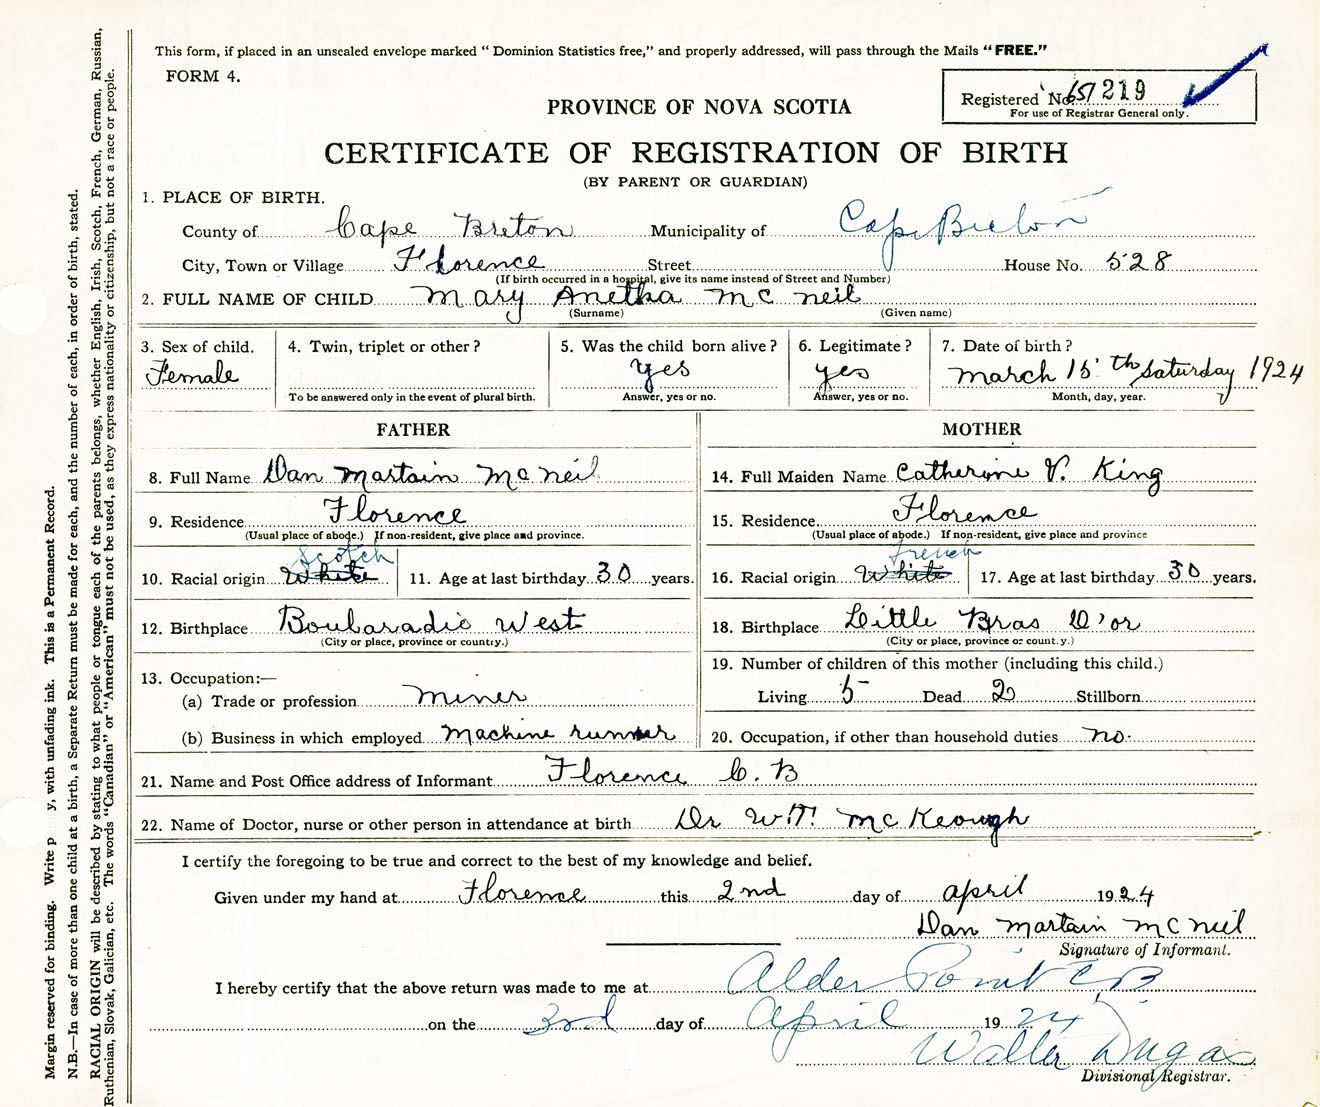 This form, if placed in an unsealed envelope marked "Dominion Statistics free," and properly addressed, will pass through the Mails "FREE."
FORM 4.
Registered No. 651219
For use of Registrar General only.
PROVINCE OF NOVA SCOTIA
CERTIFICATE OF REGISTRATION OF BIRTH
(BY PARENT OR GUARDIAN)
1. PLACE OF BIRTH.
County of Cape Breton Municipality of Cape Breton
City, Town or Village Florence Street House No. 528
(If birth occurred in a hospital, give its name instead of Street and Number)
2. FULL NAME OF CHILD Mary Anetha Mc neil
(Surname) (Given name)
3. Sex of child. 4. Twin, triplet or other? 5. Was the child born alive? 6. Legitimate? 7. Date of birth?
Female yes yes march 15th Saturday 1924
To be answered only in the event of plural birth. Answer, yes or no. Answer, yes or no. Month, day, year.
FATHER MOTHER
8. Full Name Dan Martain McNeil 14. Full Maiden Name Catherine V. King
9. Residence Florence 15. Residence Florence
(Usual place of abode.) If non-resident, give place and province. (Usual place of abode.) If non-resident, give place and province
Scotch French
10. Racial origin White 11. Age at last birthday 30 years. 16. Racial origin White 17. Age at last birthday 30 years.
12. Birthplace Boularadio West 18. Birthplace Little Bras D'or
(City or place, province or country.) (City or place, province or count.y.)
13. Occupation:— 19. Number of children of this mother (including this child.)
(a) Trade or profession miner Living 5 Dead 2 Stillborn
(b) Business in which employed Machine runner 20. Occupation, if other than household duties no.
21. Name and Post Office address of Informant Florence C. B
22. Name of Doctor, nurse or other person in attendance at birth Dr W.T. McKeough
I certify the foregoing to be true and correct to the best of my knowledge and belief.
Given under my hand at Florence this 2nd day of april 1924
Dan Martain McNeil
Signature of Informant.
I hereby certify that the above return was made to me at Alder Point CB
on the 3rd day of April 1924
Walter Dugas
Divisional Registrar.
Margin reserved for binding. Write p y, with unfading ink. This is a Permanent Record.
N.B.—In case of more than one child at a birth, a Separate Return must be made for each, and the number of each, in order of birth, stated.
RACIAL ORIGIN will be described by stating to what people or tongue each of the parents belongs, whether English, Irish, Scotch, French, German, Russian,
Ruthenian, Slovak, Galician, etc. The words "Canadian" or "American" must not be used, as they express nationality or citizenship, but not a race or people.